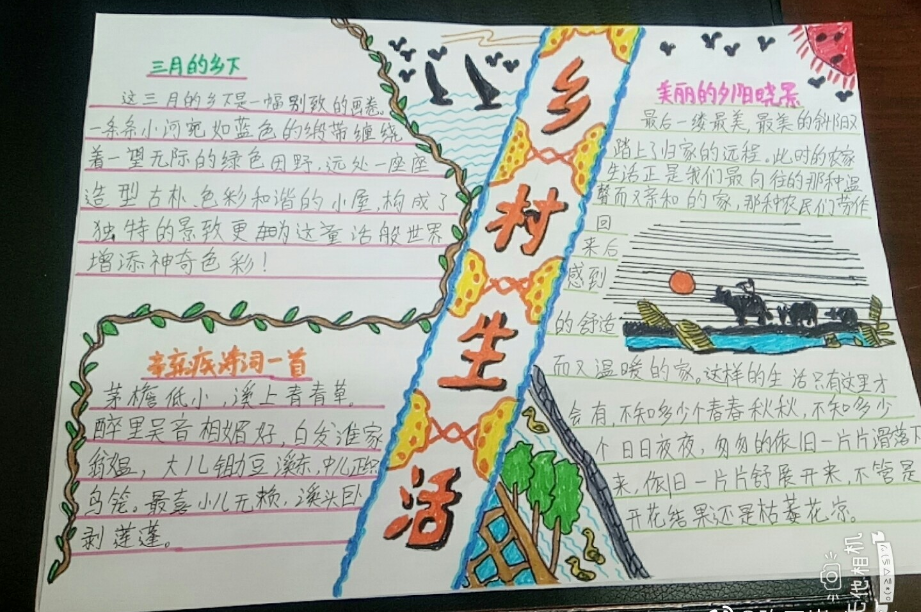 乡村生活
三月的乡下
这三月的乡下是一幅别致的画卷。
一条条小河宛如蓝色的缎带缠绕
着一望无际的绿色田野,远处一座座
造型古朴、色彩和谐的小屋,构成了
独特的景致更为这童话般世界
增添神奇色彩!
辛弃疾诗词一首
茅檐低小,溪上青青草。
醉里吴音相媚好,白发谁家
翁媪,大儿锄豆溪东,中儿正织
鸟笼。最喜小儿无赖,溪头卧
剥莲蓬。
美丽的夕阳晓景
最后一缕最美,最美的斜阳又
踏上了归家的远程。此时的农家
生活正是我们最向往的那种温
馨而又亲和的家,那种农民们劳作
回
来后
感到
的舒适
而又温暖的家。这样的生活只有这里才
会有,不知多少个春春秋秋,不知多少
个日日夜夜,匆匆的依旧一片片滑落下
来,依旧一片片舒展开来,不管是
开花结果还是枯萎花凉。